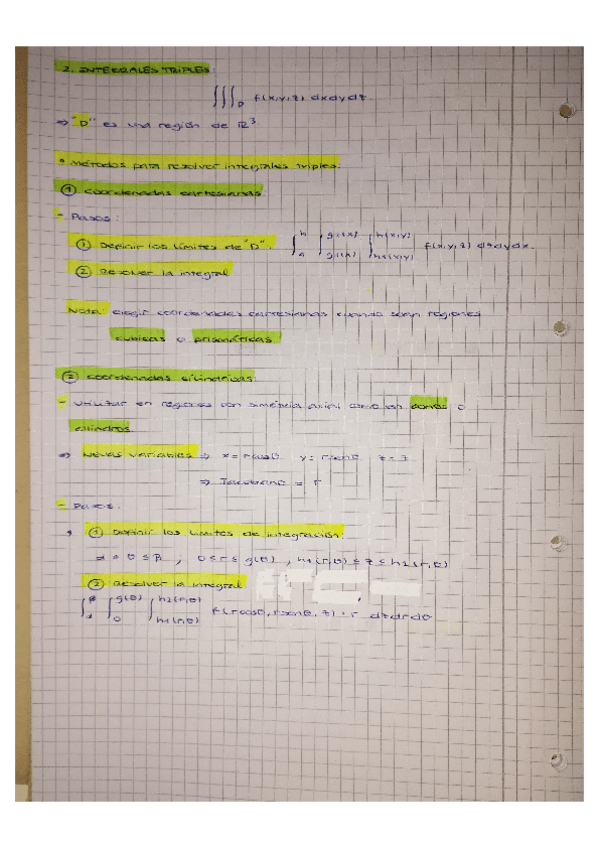 2. INTEGRALES TRIPLES:
∭_D f(x,y,z) dxdydz
⇒ "D" es una región de R³
• Métodos para resolver integrales triples:
① Coordenadas cartesianas:
- Pasos:
① Definir los límites de "D": ∫ ∫ ∫ f(x,y,z) dzdydx.
② Resolver la integral
Nota: elegir coordenadas cartesianas cuando sean regiones
cúbicas o prismáticas
② Coordenadas cilíndricas:
- Utilizar en regiones con simetría axial como en conos o
cilindros.
⇒ Nuevas variables ⇒ x = rcosθ y = rsenθ z = z
⇒ Jacobiano = r
- Pasos:
① Definir los límites de integración:
α ≤ θ ≤ β, 0 ≤ r ≤ g(θ), h1(r,θ) ≤ z ≤ h2(r,θ)
② Resolver la integral
∫ ∫_0^g(θ) ∫_h1(r,θ)^h2(r,θ) f(rcosθ, rsenθ, z) · r dzdrdθ